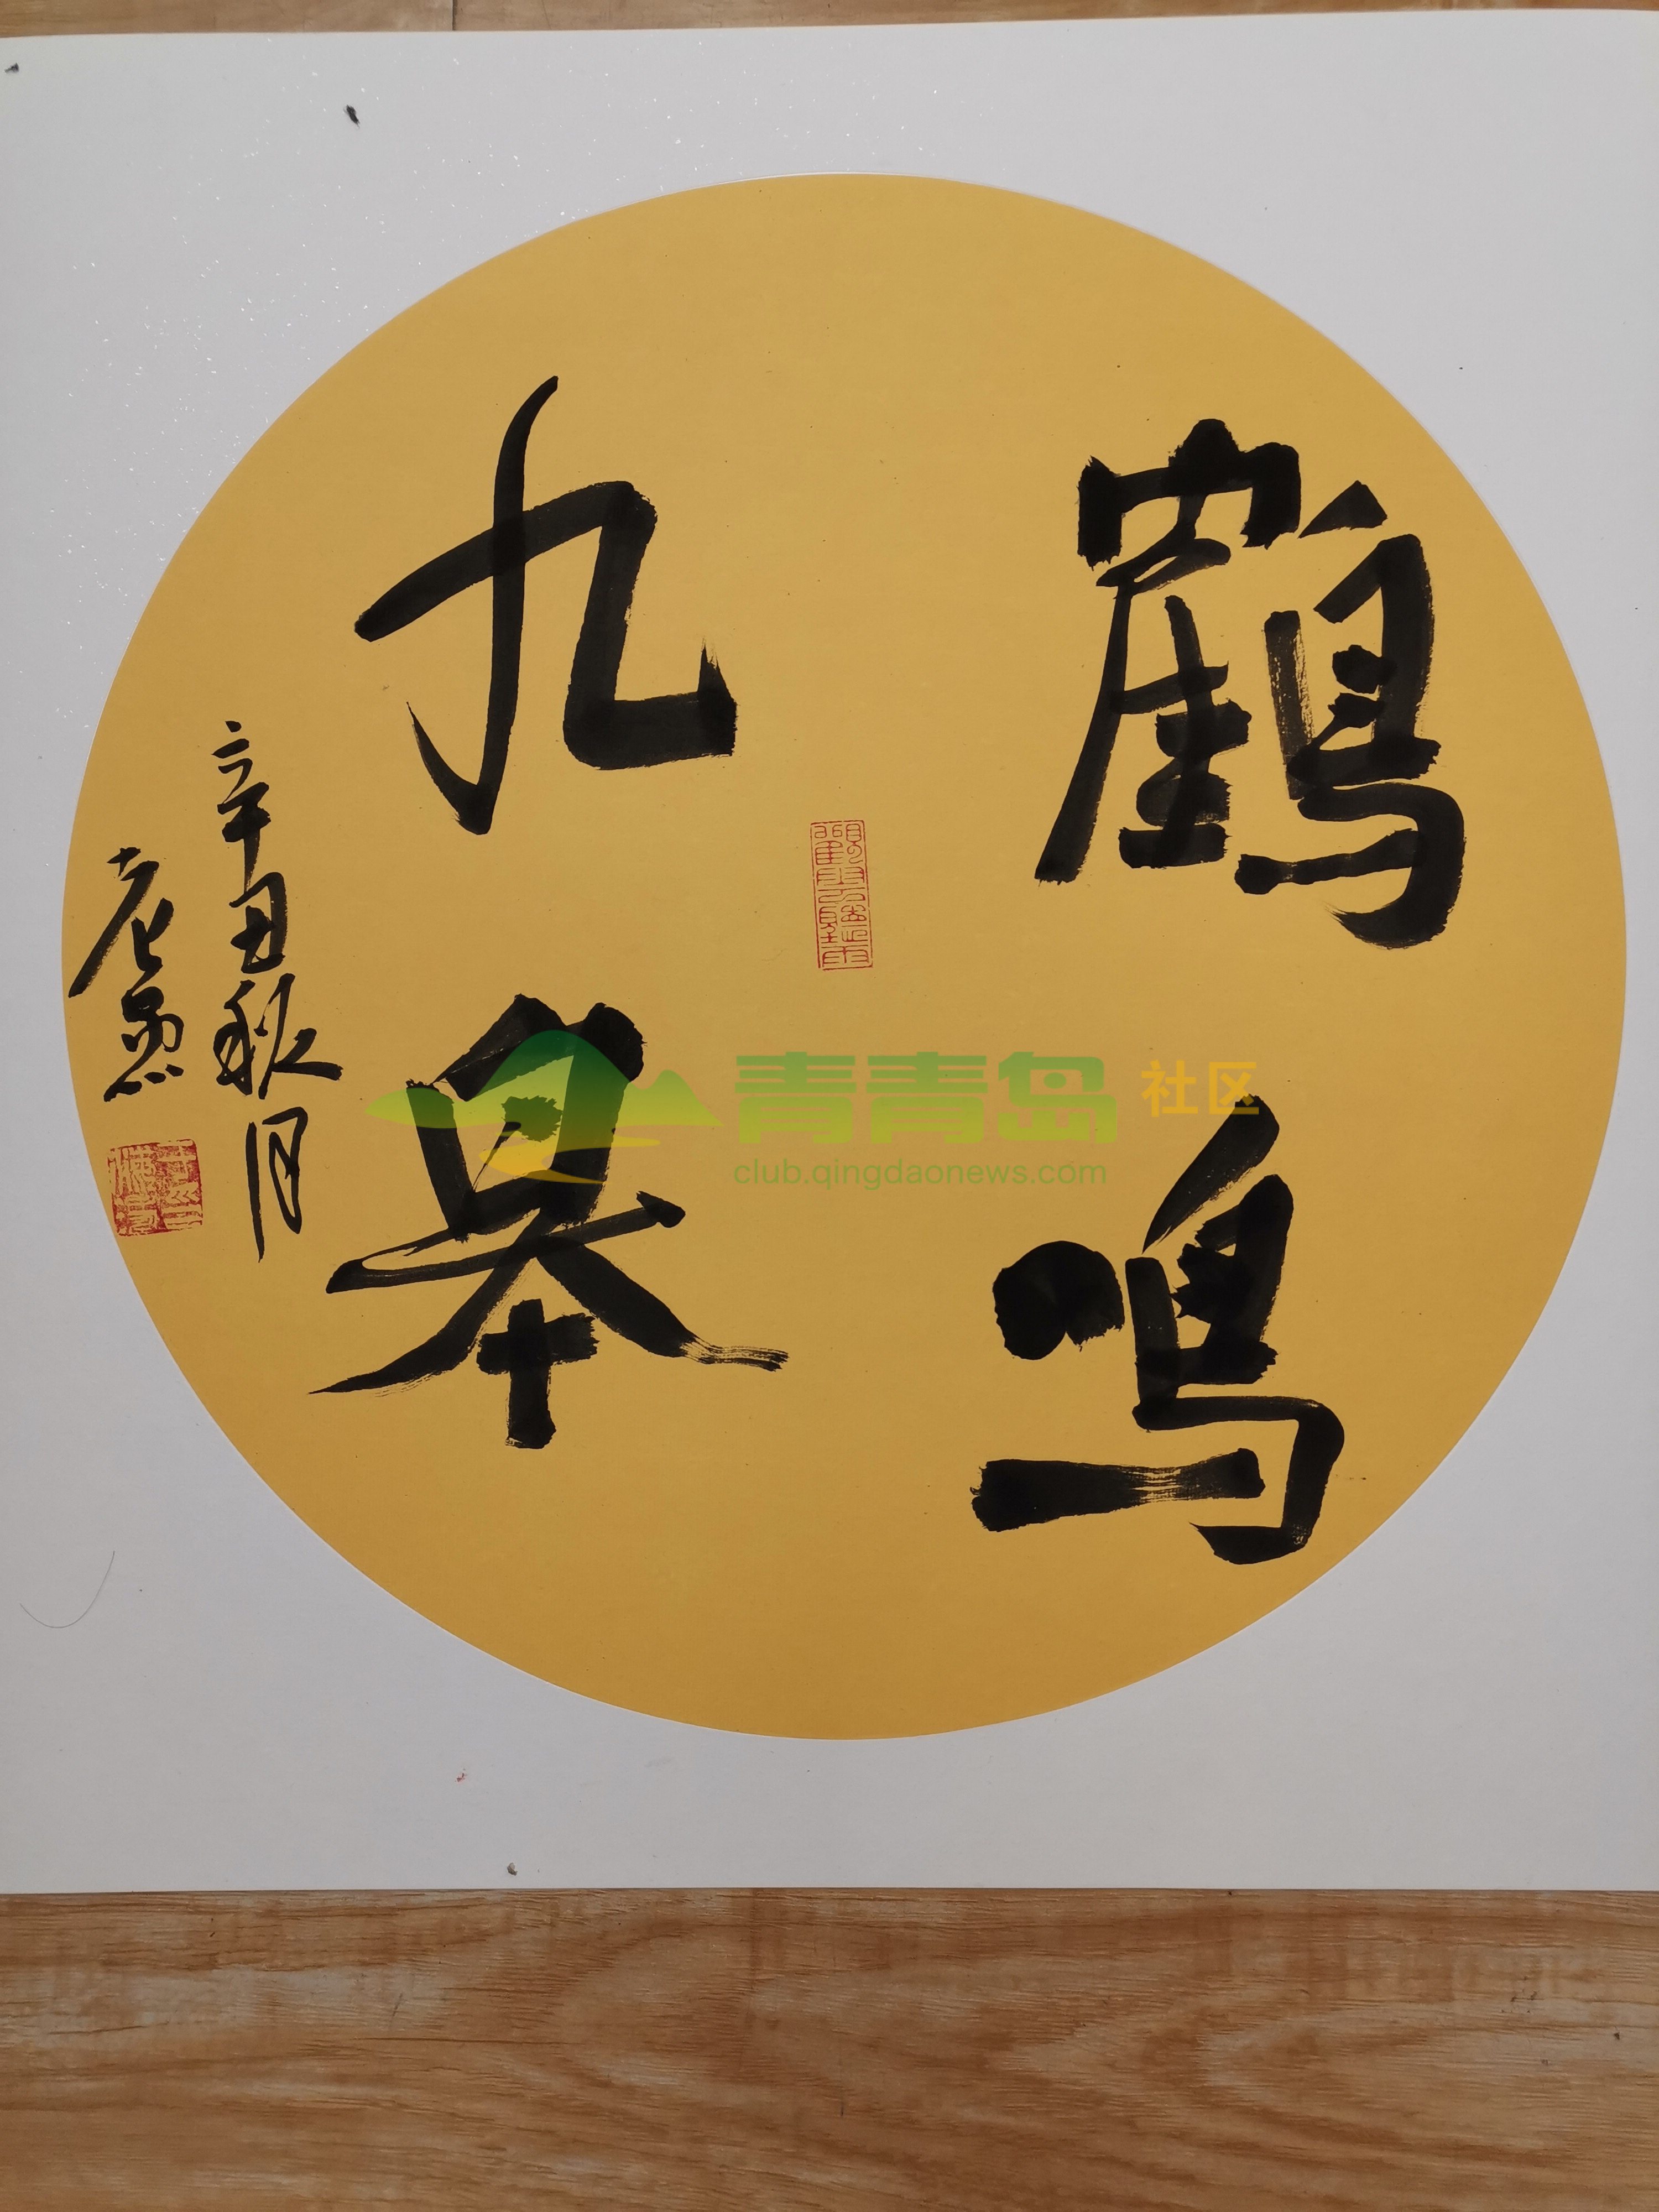 鶴鳴
九皋
辛丑秋月
老愚
青青岛 社区
club.qingdaonews.com